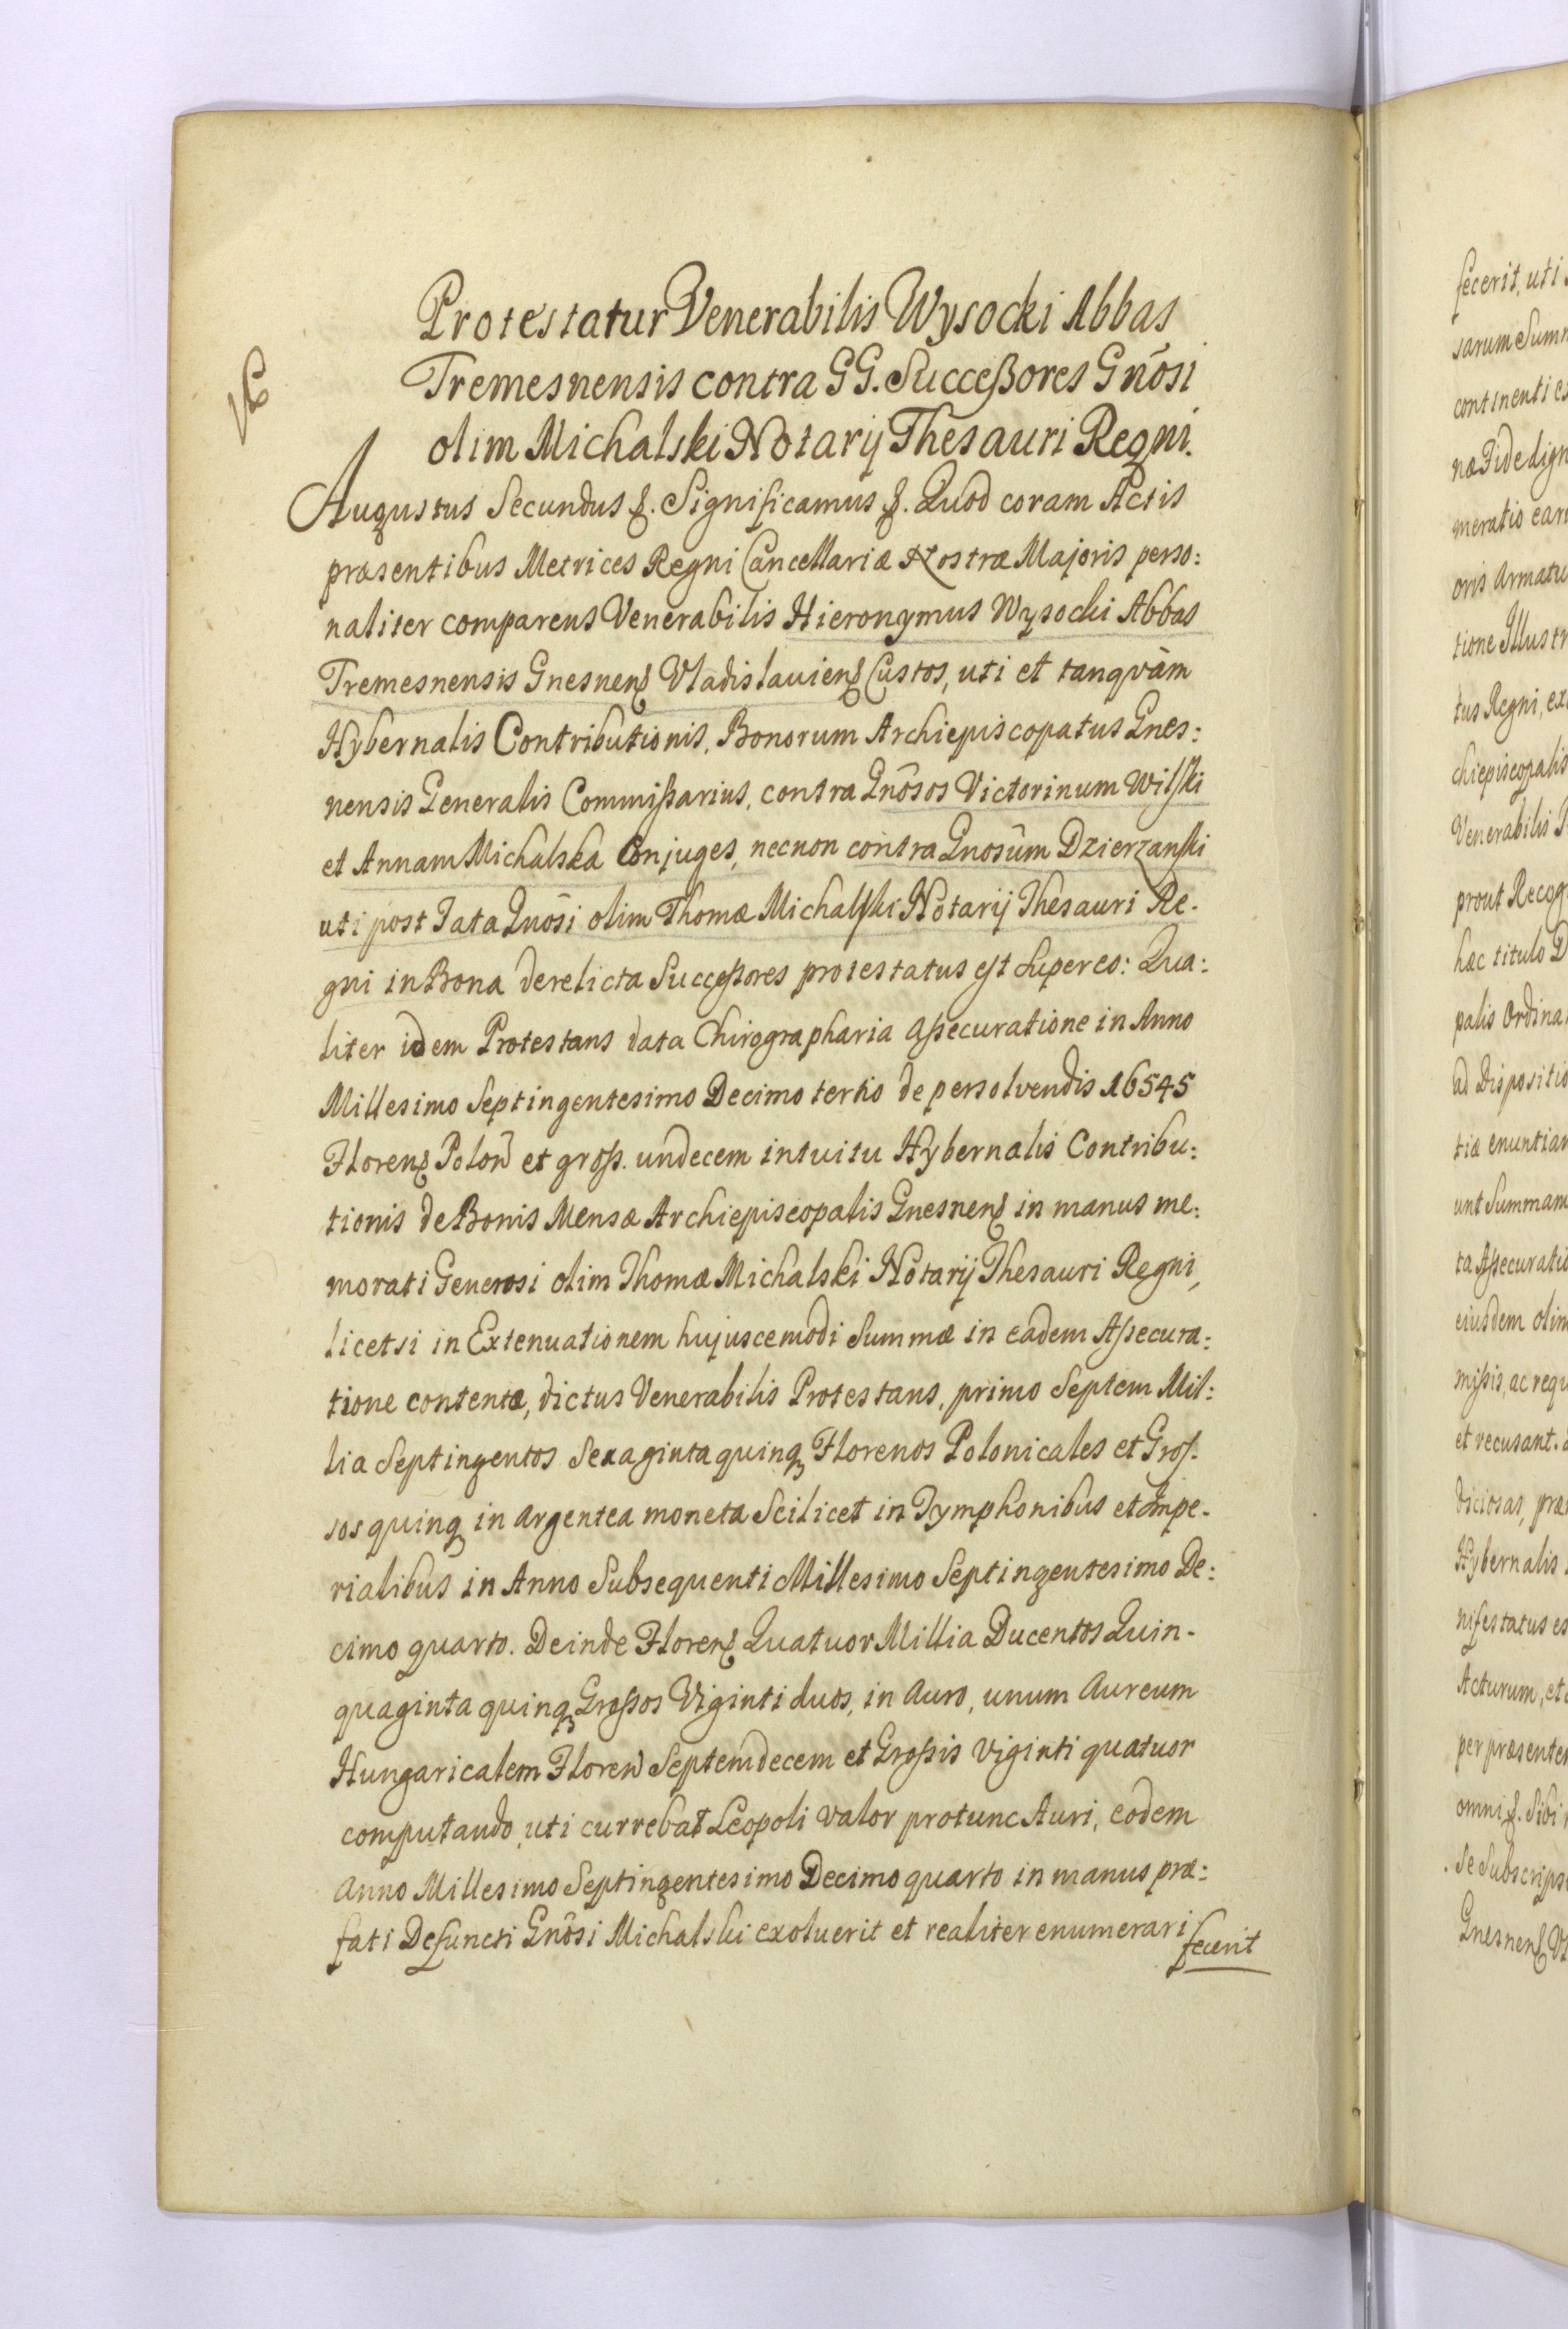 Protestatur Venerabilis Wysocki Abbas
Tremesnensis contra GG. Succeßores Gnõsi
olim Michalski Notarij Thesauri Regni.
Augustus Secundus &. Significamus &. Quod coram Actis
præsentibus Metrices Regni Cancellariæ Nostræ Majoris perso:
naliter comparens Venerabilis Hieronymus Wysocki Abbas
Tremesnensis Gnesnen̄ Vladislavien̄ Custos, uti et tanqvàm
Hybernalis Contributionis, Bonorum Archiepiscopatus Gnes:
nensis Generalis Commißarius, contra Gnõsos Victorinum Wilski
et Annam Michalska Conjuges, necnon contra Gnosûm Dzierzanski
uti post Fata Gnõsi olim Thomæ Michalski Notarij Thesauri Re-
gni in Bona derelicta Succeßores protestatus est Super eo: Qua:
liter idem Protestans data Chirographaria Aßecuratione in Anno
Millesimo Septingentesimo Decimo tertio de persolvendis 16545
Floren̄ Polon̄ et groß. undecem intuitu Hybernalis Contribu:
tionis de Bonis Mensæ Archiepiscopalis Gnesnen̄ in manus me:
morati Generosi olim Thomæ Michalski Notarij Thesauri Regni,
licetsi in Extenuationem hujuscemodi Summæ in eadem Aßecura:
tione contentæ, dictus Venerabilis Protestans, primo Septem Mil:
lia Septingentos Sexaginta quinq Florenos Polonicales et Gros-
sos quinq in Argentea moneta Scilicet in Tymphonibus et Impe-
rialibus in Anno Subsequenti Millesimo Septingentesimo De:
cimo quarto. Deinde Floren̄ Quatuor Millia Ducentos Quin-
quaginta quinq Großos Viginti duos, in Auro, unum Aureum
Hungaricalem Floren̄ Septemdecem et Großis Viginti quatuor
computando, uti currebat Leopoli valor protunc Auri, eodem
Anno Millesimo Septingentesimo Decimo quarto in manus præ:
fati Defuncti Gnõsi Michalski exoluerit et realiter enumerari
fecerit
fecerit, uti
sarum Sum
continenti
næ Fide dign
meratio ear
oris Armatu
tione Illustr
tus Regni, ex
chiepiscopalis
Venerabilis
prout Recog
hac titulo D
palis Ordina
ad Dispositio
tiæ enuntian
unt Summam
ta Aßecuratio
eiusdem olim
mißis, ac requ
et recusant.
diciosas, præ
Hybernalis
nifestatus es
Acturum, et
per præsentem
omni &. Sibi
Se Subscrips
Gnesnen̄ Vl